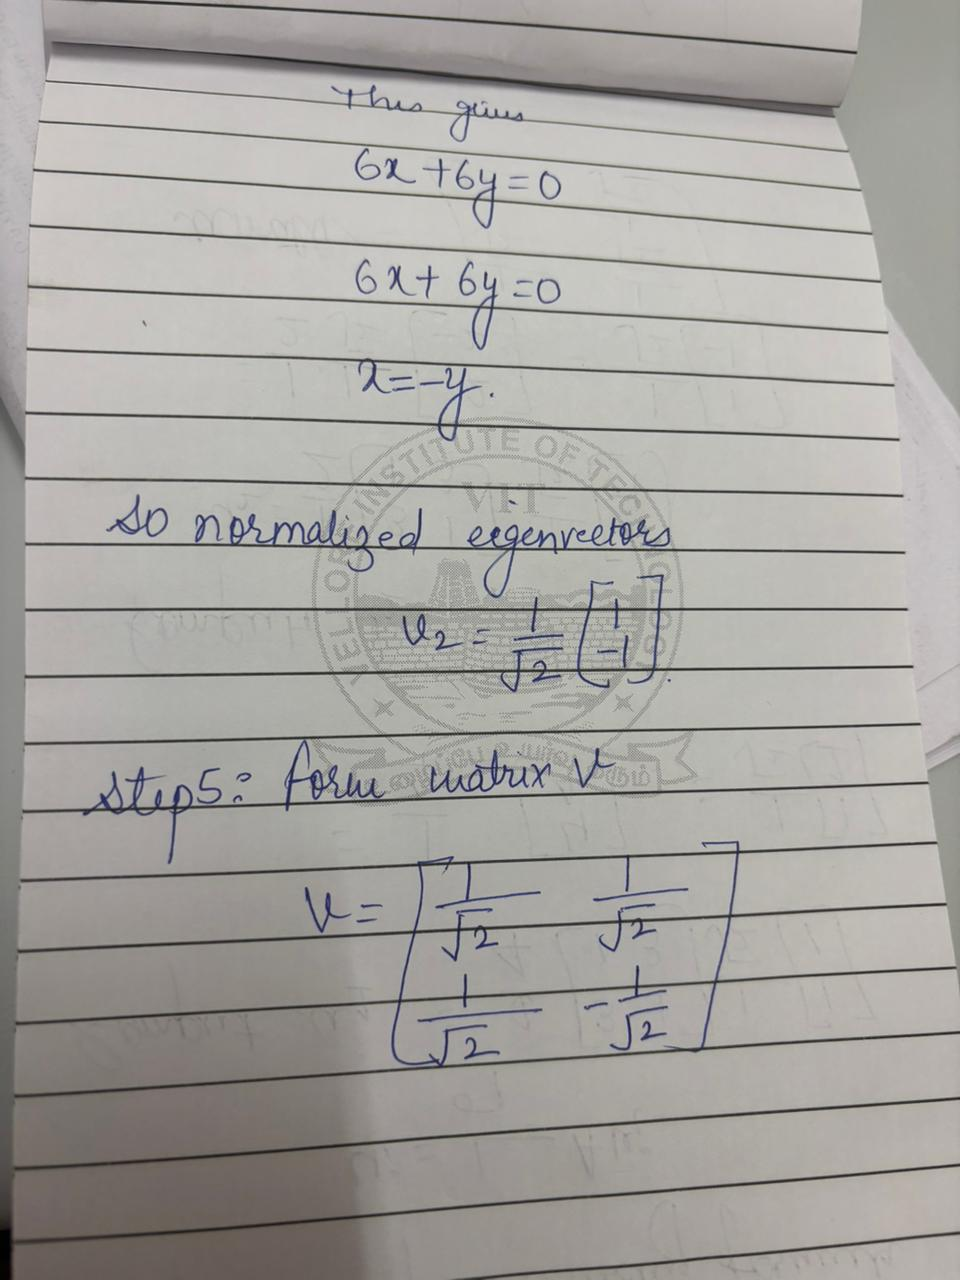 This gives
6x + 6y = 0
6x + 6y = 0
x = -y.
So normalized eigenvectors
v₂ = 1/√2 [1 -1].
Step 5: form matrix V
V = [1/√2 1/√2
1/√2 -1/√2]
VELLORE INSTITUTE OF TECHNOLOGY
VIT